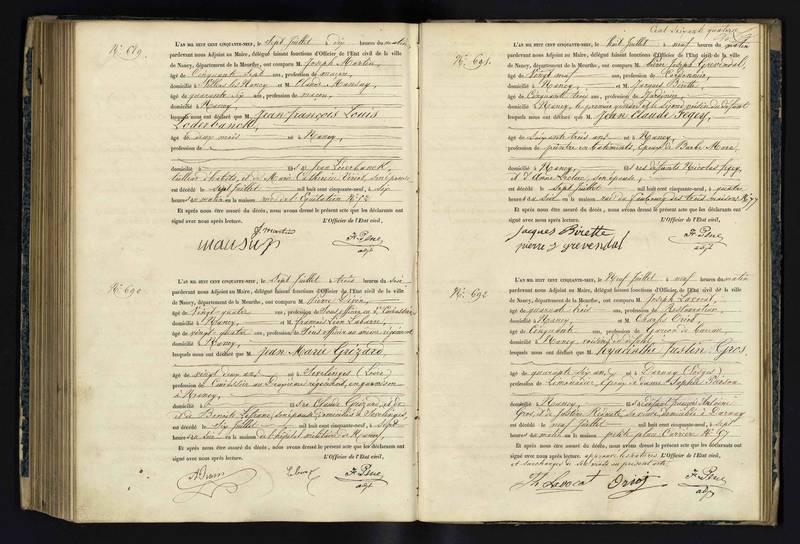 N.º 689.
L'AN MIL HUIT CENT CINQUANTE-NEUF, le sept Juillet dix heures du matin
pardevant nous Adjoint au Maire, délégué faisant fonctions d'Officier de l'Etat civil de la ville
de Nancy, département de la Meurthe, ont comparu M. Joseph Martin,
âgé de Cinquante sept ans, profession de maçon,
domicilié à Villers les Nancy et M.
âgé de quarante six ans, profession de maçon,
domicilié à Nancy,
lesquels nous ont déclaré que M. Jean François Louis
Loderbanck,
âgé de deux mois né à Nancy
profession de
domicilié à
et de Marie Catherine son épouse
est décédé le sept Juillet mil huit cent cinquante-neuf, à six
heures du matin en la maison rue de l'Equitation N.º 12
Et après nous être assuré du décès, nous avons dressé le présent acte que les déclarants ont
signé avec nous après lecture. L'Officier de l'Etat civil,
adjt
N.º 690.
L'AN MIL HUIT CENT CINQUANTE-NEUF, le sept Juillet à trois heures du soir
pardevant nous Adjoint au Maire, délégué faisant fonctions d'Officier de l'Etat civil de la ville
de Nancy, département de la Meurthe, ont comparu M. Pierre
âgé de Vingt quatre ans, profession de Sous officier
domicilié à Nancy et M. François Léon
âgé de vingt quatre ans, profession de Sous officier au même régiment
domicilié à Nancy,
lesquels nous ont déclaré que M. Jean Marie Grézard
âgé de vingt deux ans né à Sevelinges (Loire)
profession de en garnison
à Nancy,
domicilié à fils de Claude Grézard, et de
et de Benoite son épouse domiciliés à Sevelinges,
est décédé le six Juillet mil huit cent cinquante-neuf, à sept
heures du soir en la maison de l'hôpital militaire de Nancy,
Et après nous être assuré du décès, nous avons dressé le présent acte que les déclarants ont
signé avec nous après lecture. L'Officier de l'Etat civil,
adjt
Cent soixante quatorze
N.º 691.
L'AN MIL HUIT CENT CINQUANTE-NEUF, le huit Juillet à neuf heures du matin
pardevant nous Adjoint au Maire, délégué faisant fonctions d'Officier de l'Etat civil de la ville
de Nancy, département de la Meurthe, ont comparu M. Pierre Joseph Grevendal,
âgé de Vingt neuf ans, profession de Cordonnier,
domicilié à Nancy et M. Jacques Birette
âgé de Cinquante trois ans, profession de Jardinier,
domicilié à Nancy, le premier gendre et le second voisin du défunt
lesquels nous ont déclaré que M. Jean Claude Fegey,
âgé de soixante trois ans né à Nancy
profession de peintre en bâtiments, époux de Barbe Marc
domicilié à Nancy, fils des défunts Nicolas Fegey,
et d'Anne son épouse
est décédé le sept Juillet mil huit cent cinquante-neuf, à quatre
heures du soir en la maison rue du faubourg des trois maisons N.º 77
Et après nous être assuré du décès, nous avons dressé le présent acte que les déclarants ont
signé avec nous après lecture. L'Officier de l'Etat civil,
Jacques Birette
pierre j grevendal
adjt
N.º 692
L'AN MIL HUIT CENT CINQUANTE-NEUF, le Neuf Juillet à neuf heures du matin
pardevant nous Adjoint au Maire, délégué faisant fonctions d'Officier de l'Etat civil de la ville
de Nancy, département de la Meurthe, ont comparu M. Joseph Lavocat,
âgé de quarante trois ans, profession de Restaurateur,
domicilié à Nancy, et M. Charles Oriot,
âgé de Cinquante ans, profession de Garçon de bureau
domicilié à Nancy, voisins du défunt
lesquels nous ont déclaré que M. Hyacinthe Justin Gros,
âgé de quarante six ans né à Darney (Vosges)
profession de Limonadier, époux de dame Sophie
domicilié à Nancy, fils de défunt François Antoine
Gros, et de Justine sa veuve domiciliée à Darney
est décédé le neuf Juillet mil huit cent cinquante-neuf, à sept
heures du matin en la maison petite place Carrière N.º 97
Et après nous être assuré du décès, nous avons dressé le présent acte que les déclarants ont
signé avec nous après lecture. L'Officier de l'Etat civil,
Lavocat Oriot
adjt